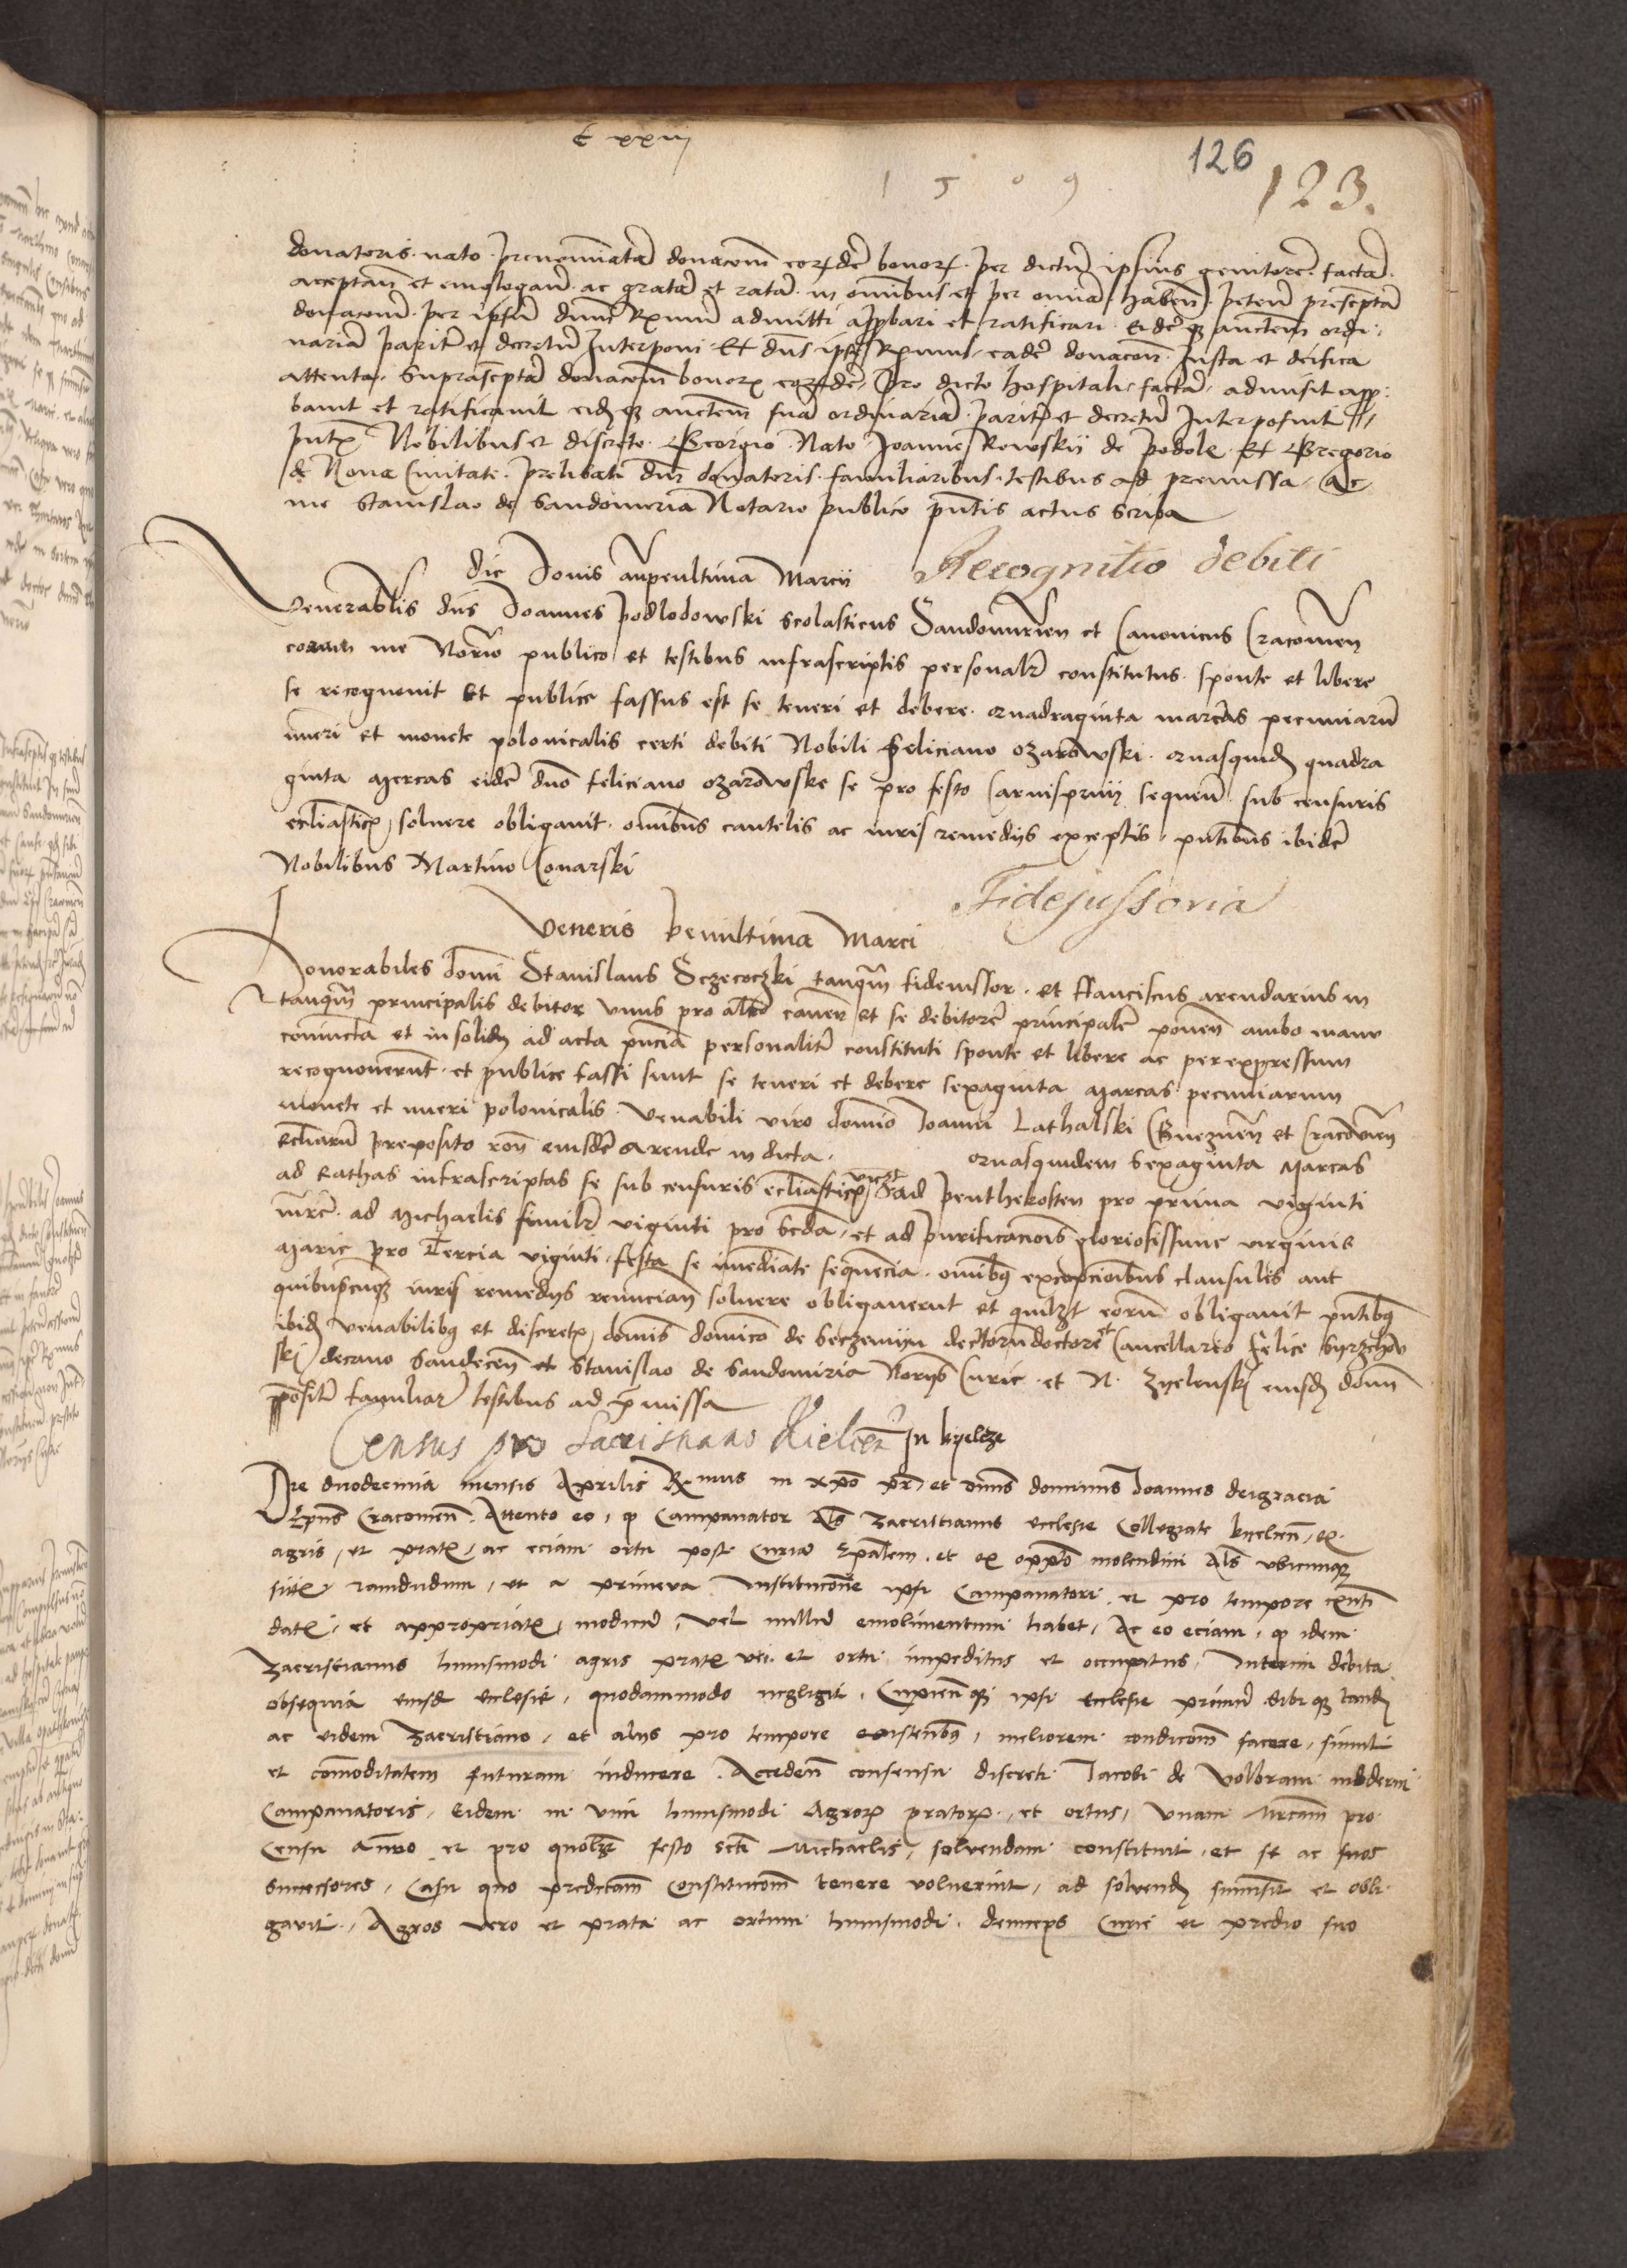 C xxiij
126
1 5 0 9
123.
donatoris nato prenominatã donacõem eorũdẽ bonorũ per dictũ ipsius genitorẽ factã
acceptan̄ et emologan̄ ac gratã et ratã in omibus et per omnia habeñ petens prescptã
donacõem per ipsũ dnm̃ Rxmum admitti approbari et ratificari eidẽqz auctem ordi
nariã pariter et decretũ Interponi Et dns ipse Rxmus eadẽ donacõe Justa et deifica
attenta suprascptã donacõem bonorũ eorũdẽ pro dicto hospitali factã admisit appro
bavit et ratificavit eidqz auctem suã ordinariã pariter et decretũ Interposuit
pntẽ Nobilibus et discreto Georgio Nato Joanne Rewskij de podole Et Gregorio
de Nova Civitate prelibati dni donatoris familiaribus testibus ad premissa ac
me Stanislao de Sandomiria Notario publico pntis actus scriba
Die Jovis anpenultima Marcij Recognitio debiti
Venerablis dns Joannes podlodowski scolasticus Sandomirien et Canonicus Cracovien
coram me Norio publico et testibus infrascriptis personalr constitutus sponte et libere
se recognovit Et publice fassus est se teneri et debere quadraginta marcas pecuniarũ
nũeri et monete polonicalis certi debiti Nobili Feliciano ozarowski quasquid quadra
ginta Marcas eidẽ dno feliciano ozarowske se pro festo Carnisprivij sequen̄ sub censuris
eccliasticis solvere obligavit omibus cautelis ac iuris remedijs exceptis pntibus ibidẽ
Nobilibus Martino Conarski
Fidejussoria
Veneris penultima Marci
Honorabiles domi Stanislaus Sczecoczki tanqm fideiussor et ffranciscus arendarius in
tanqm principalis debitor unus pro altero caven et se debitorẽ principalẽ ponen ambo manu
coniuncta et insolid ad acta pncia personaliter constituti sponte et libere ac per expressum
recognoverunt et publice fassi sunt se teneri et debere sexaginta Marcas pecuniarum
monete et nũeri polonicalis venabili viro domino Joanni Lathalski Gneznen et Cracovien
eccliarũ preposito ron eiusdẽ arende in dicta quasquidem sexaginta Marcas
ad Rathas infrascriptas se sub censuris eccliasticis vicz ad penthekosten pro prima viginti
mrc ad Michaelis similr viginti pro scda et ad purificacõis gloriosissime virginis
Marie pro Tercia viginti festa se imediate sequencia omibz excepcioibus clausulis aut
quibuscunqz iuris remedijs renuncian solvere obligaverunt et quilzt eorũ obligavit pntibz
ibid venabilibz et discretis domis domico de Seczemijn decretorũ doctore et Cancellario felice Syrzchow
ski decano Sandecen et Stanislao de Sandomiria Norijs Curie et N. Zyelenski eiusd domi
positi familiar testibus ad pmissa
Census pro Sacristiano Kielcen In kijelcze
Die duodecima mensis Aprilis Rxmus in xpo pr et dnus dominus Joannes dei gracia
Epus Cracovien. Attento eo, qz Campanator Als zacristianus ecclesie Collegiate kijelcien, ex
agris, et pratis, ac eciam orto post Curiã Epalem, et ex opposito molendini Als ubicunqz
sitis iamdudum, ut a primeva Institucõne ipsi Campanatori, et pro tempore exnti
datis, et appropriatis, modicũ, vel nullũ emolimentum habet, Ac eo eciam, qz idem
zacristianus huiusmodi agris pratis uti et orto impeditus et occupatus, Interim debita
obsequia eiusd ecclesie, quodammodo negligit, Cupien qz ipsi ecclesie primũ sibiqz tand
ac eidem zacristiano, et alijs pro tempore existentibz, meliorem condicõem facere, simul
et comoditatem futuram inducere. Acceden consensu discreti Jacobi de Volbram moderni
Campanatoris, Eidem in vim huiusmodi Agrorũ pratorũ, et ortus, Unam Mrcam pro
Censu Annuo et pro quolzt festo scti Michaelis, solvendam constituit, et se ac suos
successores, Casu quo predictam constitucõem tenere voluerint, ad solvend submisit et obli
gavit, Agros vero et prata ac ortum huiusmodi, deinceps Curie et predio suo